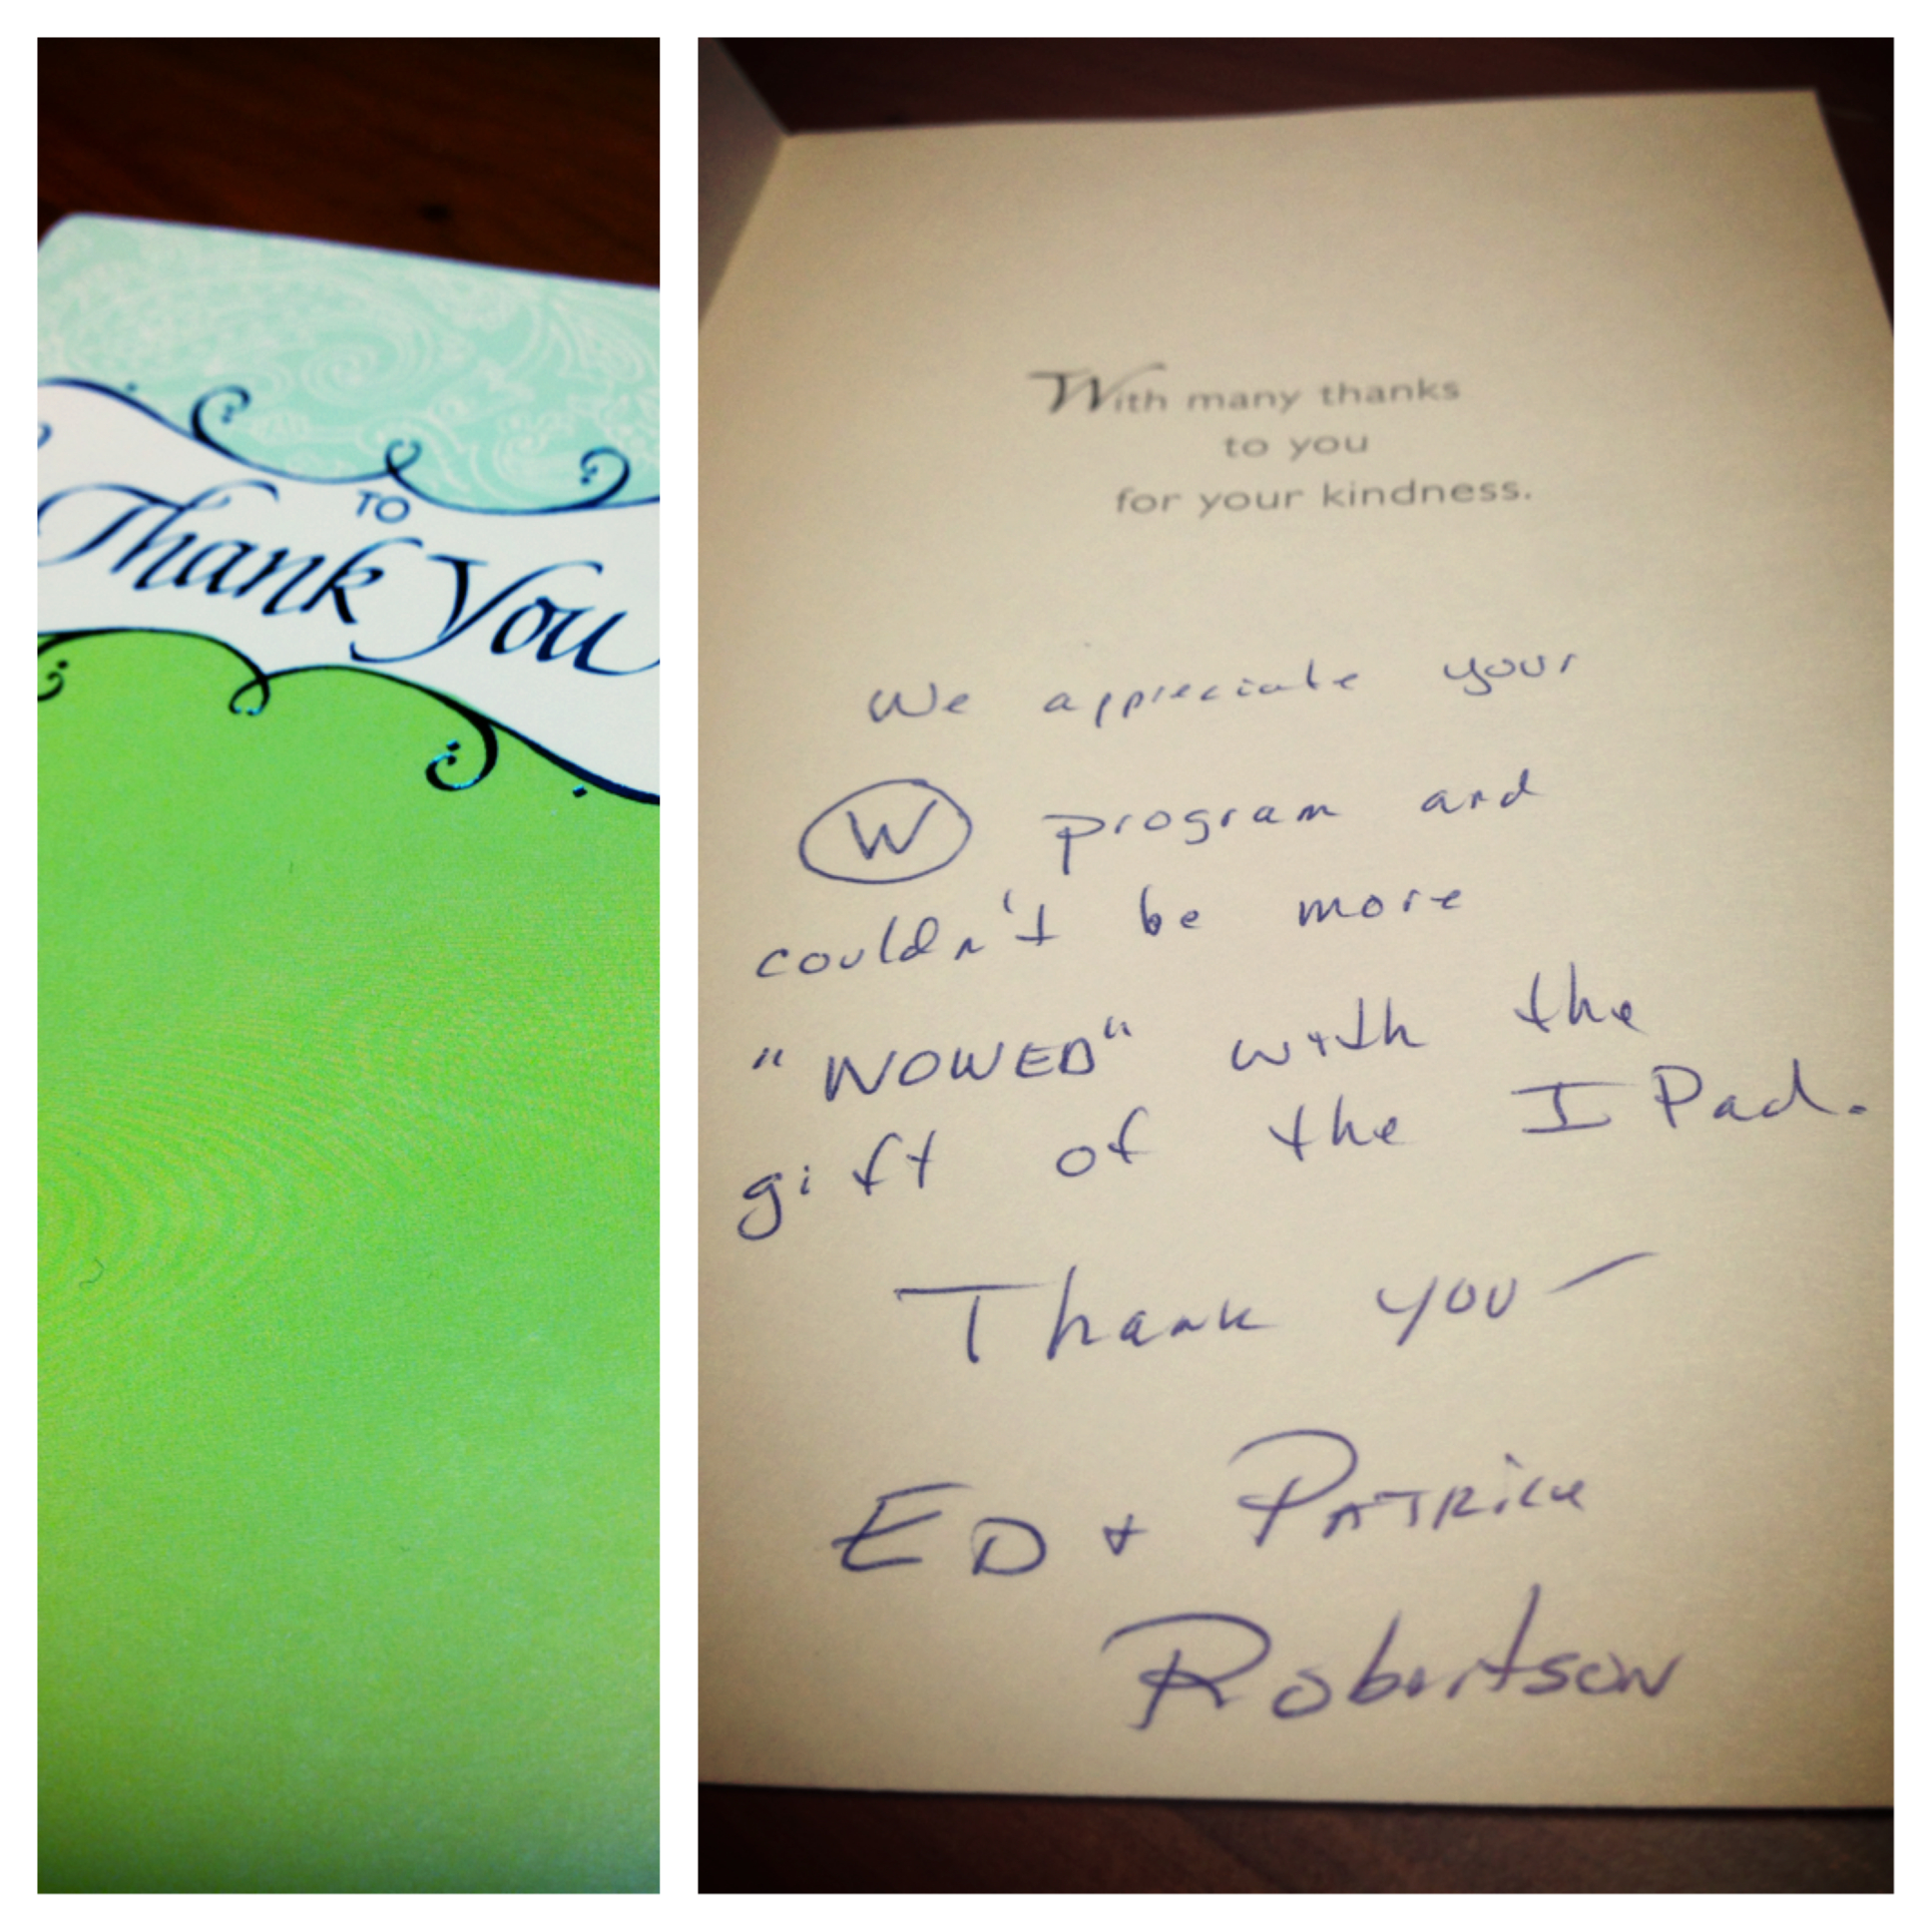 TO
Thank You
With many thanks
to you
for your kindness.
We appreciate your
W program and
couldn't be more
"WOWED" with the
gift of the IPad.
Thank you –
ED + PATRICK
Robertson